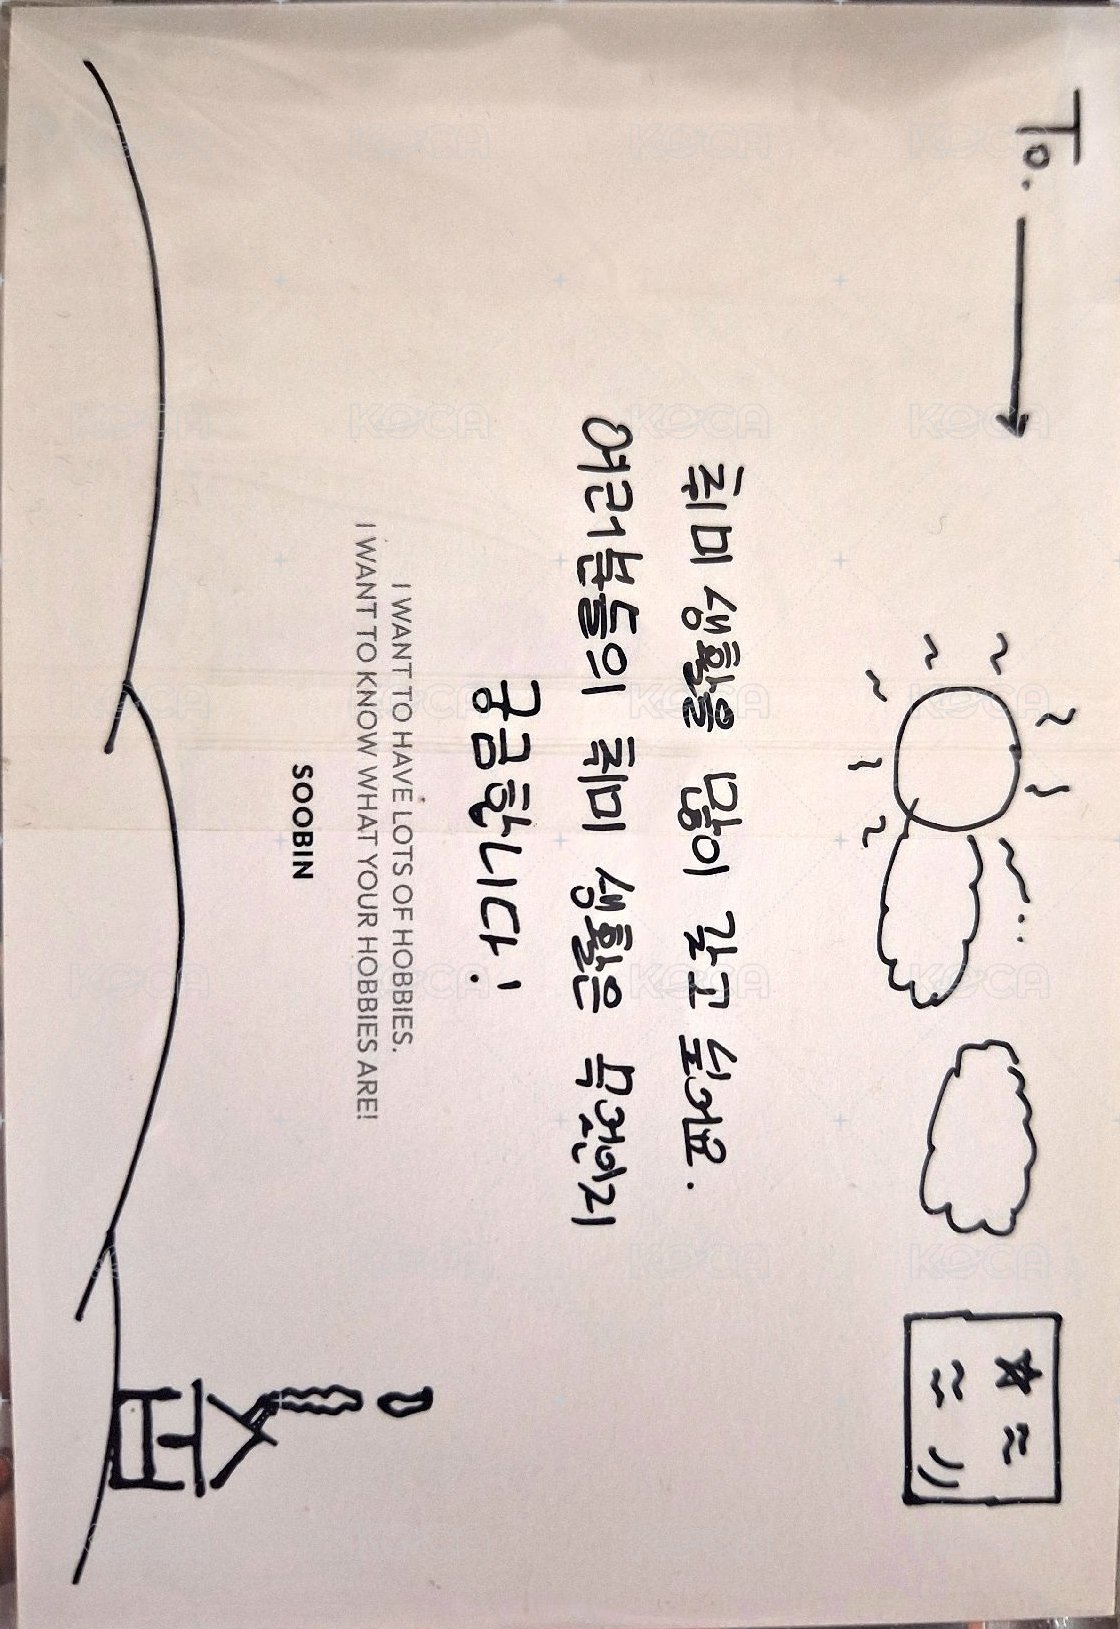 To.
취미 생활을 많이 갖고 싶어요.
여러분들의 취미 생활은 무엇인지
궁금합니다!
I WANT TO HAVE LOTS OF HOBBIES.
I WANT TO KNOW WHAT YOUR HOBBIES ARE!
SOOBIN
KOCA